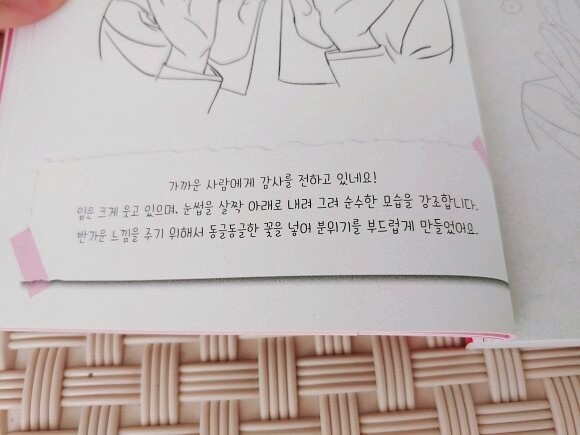 가까운 사람에게 감사를 전하고 있네요!
입은 크게 웃고 있으며, 눈썹을 살짝 아래로 내려 그려 순수한 모습을 강조합니다.
반가운 느낌을 주기 위해서 동글동글한 꽃을 넣어 분위기를 부드럽게 만들었어요.